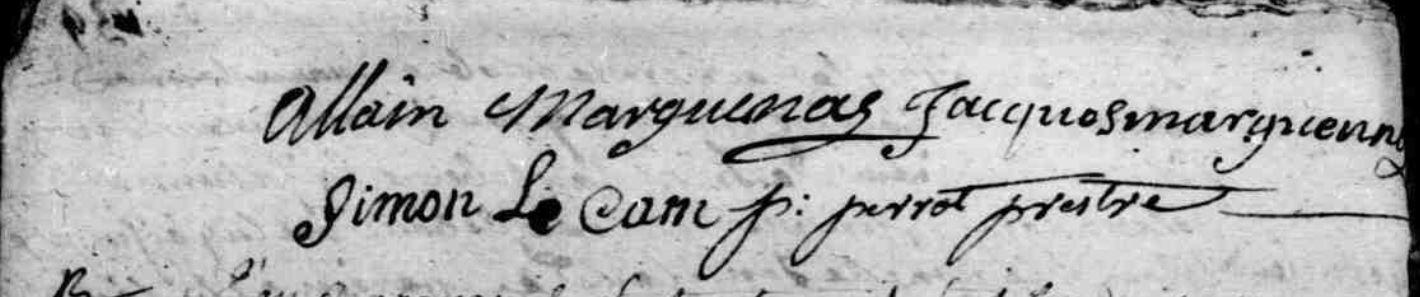 Allain Marguenas Jacquos marguenn
Simon Le Cam p: perrot prestre